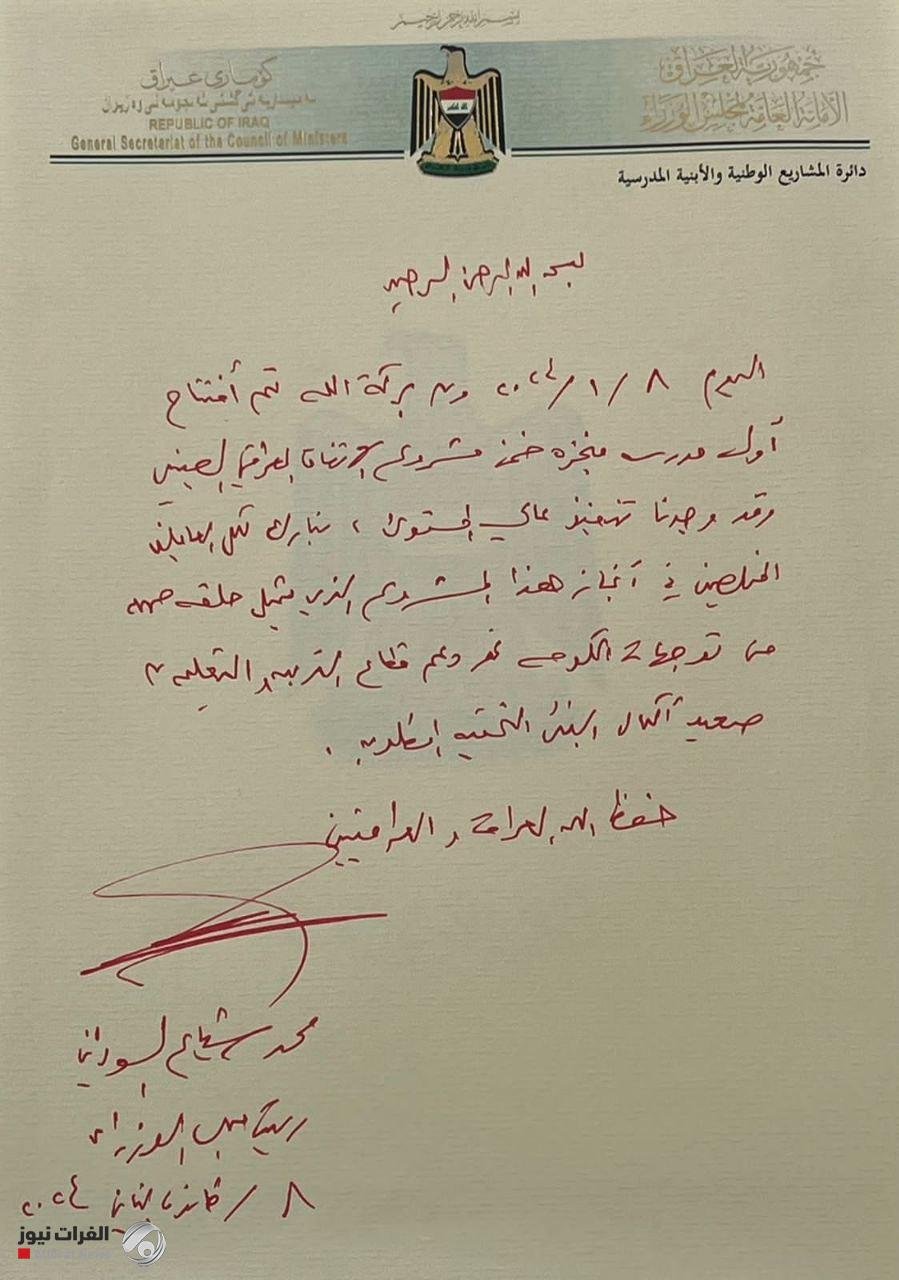 بسم الله الرحمن الرحيم
جمهورية العراق
الأمانة العامة لمجلس الوزراء
كوماری عیراق
REPUBLIC OF IRAQ
General Secretariat of the Council of Ministers
دائرة المشاريع الوطنية والأبنية المدرسية
بسم الله الرحمن الرحيم
اليوم ٨ / ١ / ٢٠٢٤ ومن بركة الله تم أفتتاح
أول مدرسه منجزه ضمن مشروع الاتفاق العراقي الصيني
وقد وجدنا تنفيذ عالي المستوى ، نبارك لكل العاملين
المخلصين في أنجاز هذا المشروع الذي يمثل حلقه مهمه
من توجهات الحكومه نحو دعم قطاع التربيه والتعليم
صعيد أكمال البنى التحتيه المطلوبه .
حفظ الله العراق والعراقيين
محمد شياع السوداني
رئيس مجلس الوزراء
٨ / كانون الثاني ٢٠٢٤
الفرات نيوز